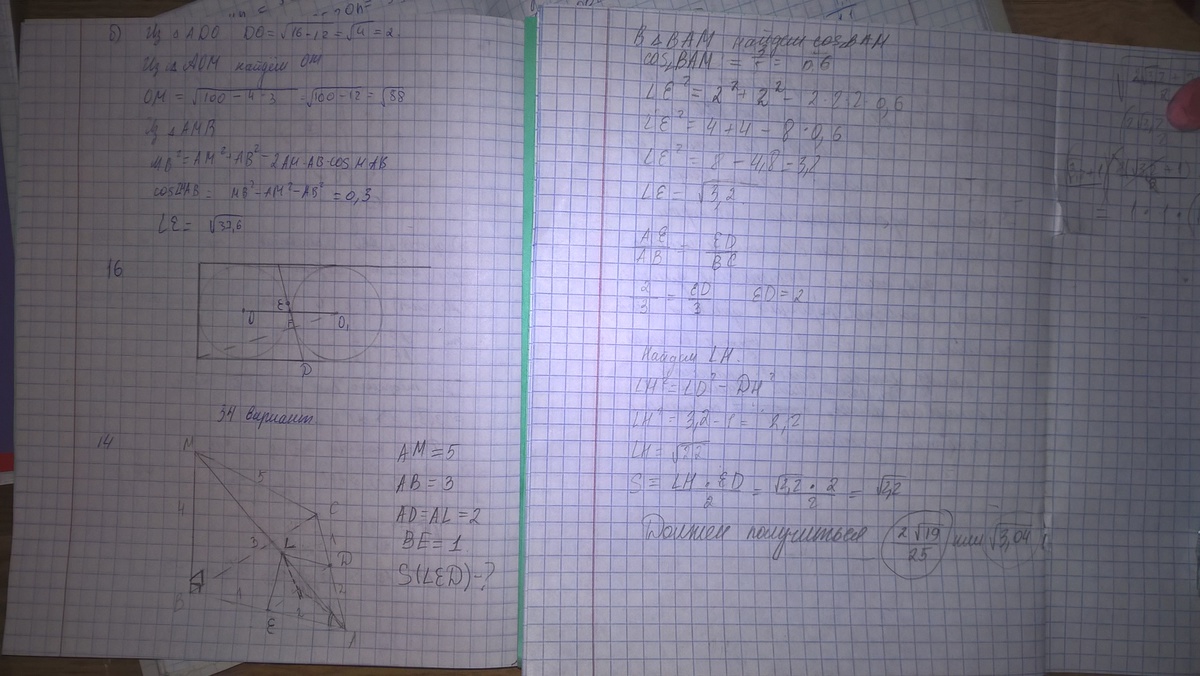 б) Из △ ADO DO = √16-12 = √4 = 2
Из △ AOM найдём OM
OM = √100 - 4·3 = √100-12 = √88
Из △ AMB
MB² = AM² + AB² - 2AM·AB·cos MAB
cos∠MAB = MB² - AM² - AB² = 0,3
LE = √33,6
16
O
E
O₁
D
34 Вариант
14
M
5
C
4
3
L
D
1
2
B
E
AM = 5
AB = 3
AD = AL = 2
BE = 1
S(LED) - ?
В △ BAM найдём cos∠BAM
cos∠BAM = = 0,6
LE² = 2² + 2² - 2·2·2·0,6
LE² = 4 + 4 - 8·0,6
LE² = 8 - 4,8 = 3,2
LE = √3,2
AE/AB = ED/BC
2/3 = ED/3 ED = 2
Найдём LH.
LH² = LD² - DH²
LH² = 3,2 - 1 = 2,2
LH = √2,2
S = LH·ED/2 = √2,2·2/2 = √2,2
Должен получиться 2√19/25 или √3,04